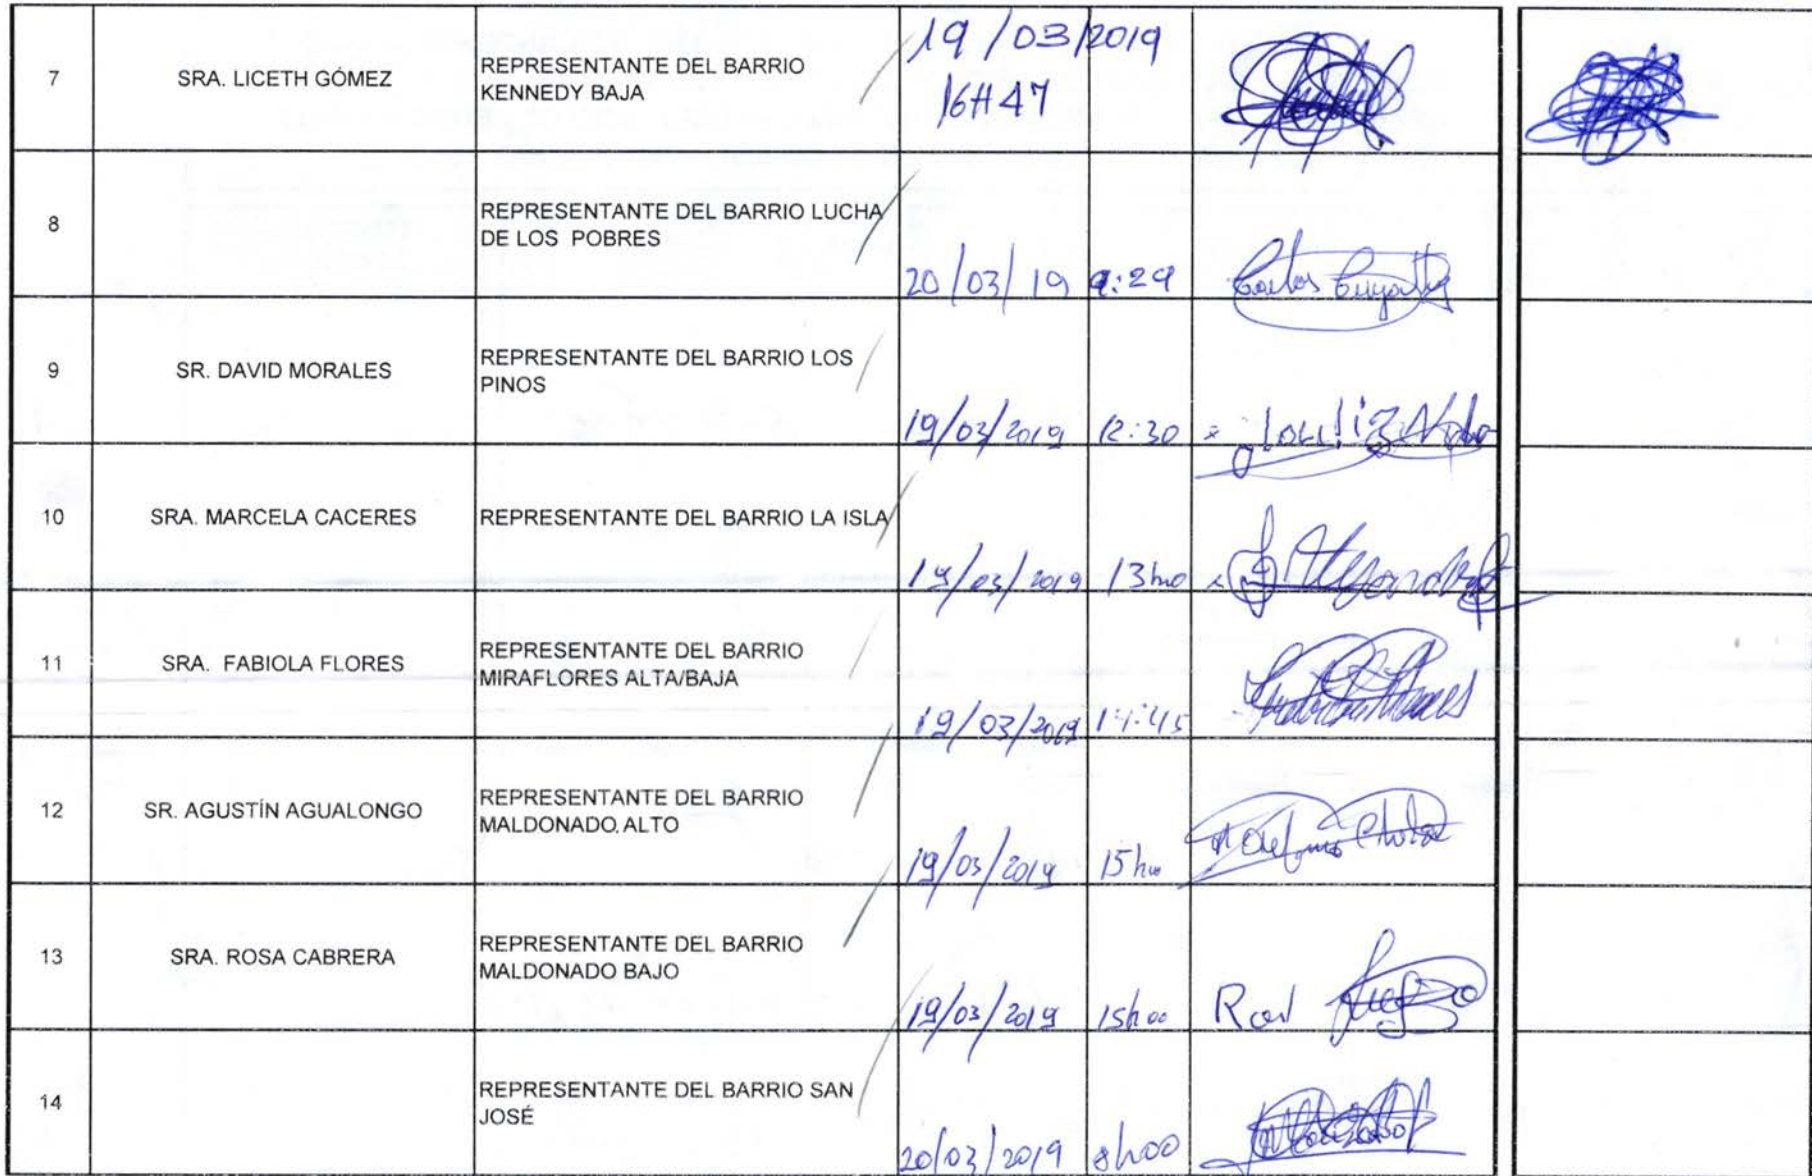 7 SRA. LICETH GÓMEZ REPRESENTANTE DEL BARRIO
KENNEDY BAJA
19/03/2019
16H47
8 REPRESENTANTE DEL BARRIO LUCHA
DE LOS POBRES
20/03/19 9:29 Carlos
9 SR. DAVID MORALES REPRESENTANTE DEL BARRIO LOS
PINOS
19/03/2019 12:30
10 SRA. MARCELA CACERES REPRESENTANTE DEL BARRIO LA ISLA
19/03/2019
11 SRA. FABIOLA FLORES REPRESENTANTE DEL BARRIO
MIRAFLORES ALTA/BAJA
19/03/2019
12 SR. AGUSTÍN AGUALONGO REPRESENTANTE DEL BARRIO
MALDONADO ALTO
19/03/2019
13 SRA. ROSA CABRERA REPRESENTANTE DEL BARRIO
MALDONADO BAJO
19/03/2019 15h00
14 REPRESENTANTE DEL BARRIO SAN
JOSÉ
20/03/2019 8h00